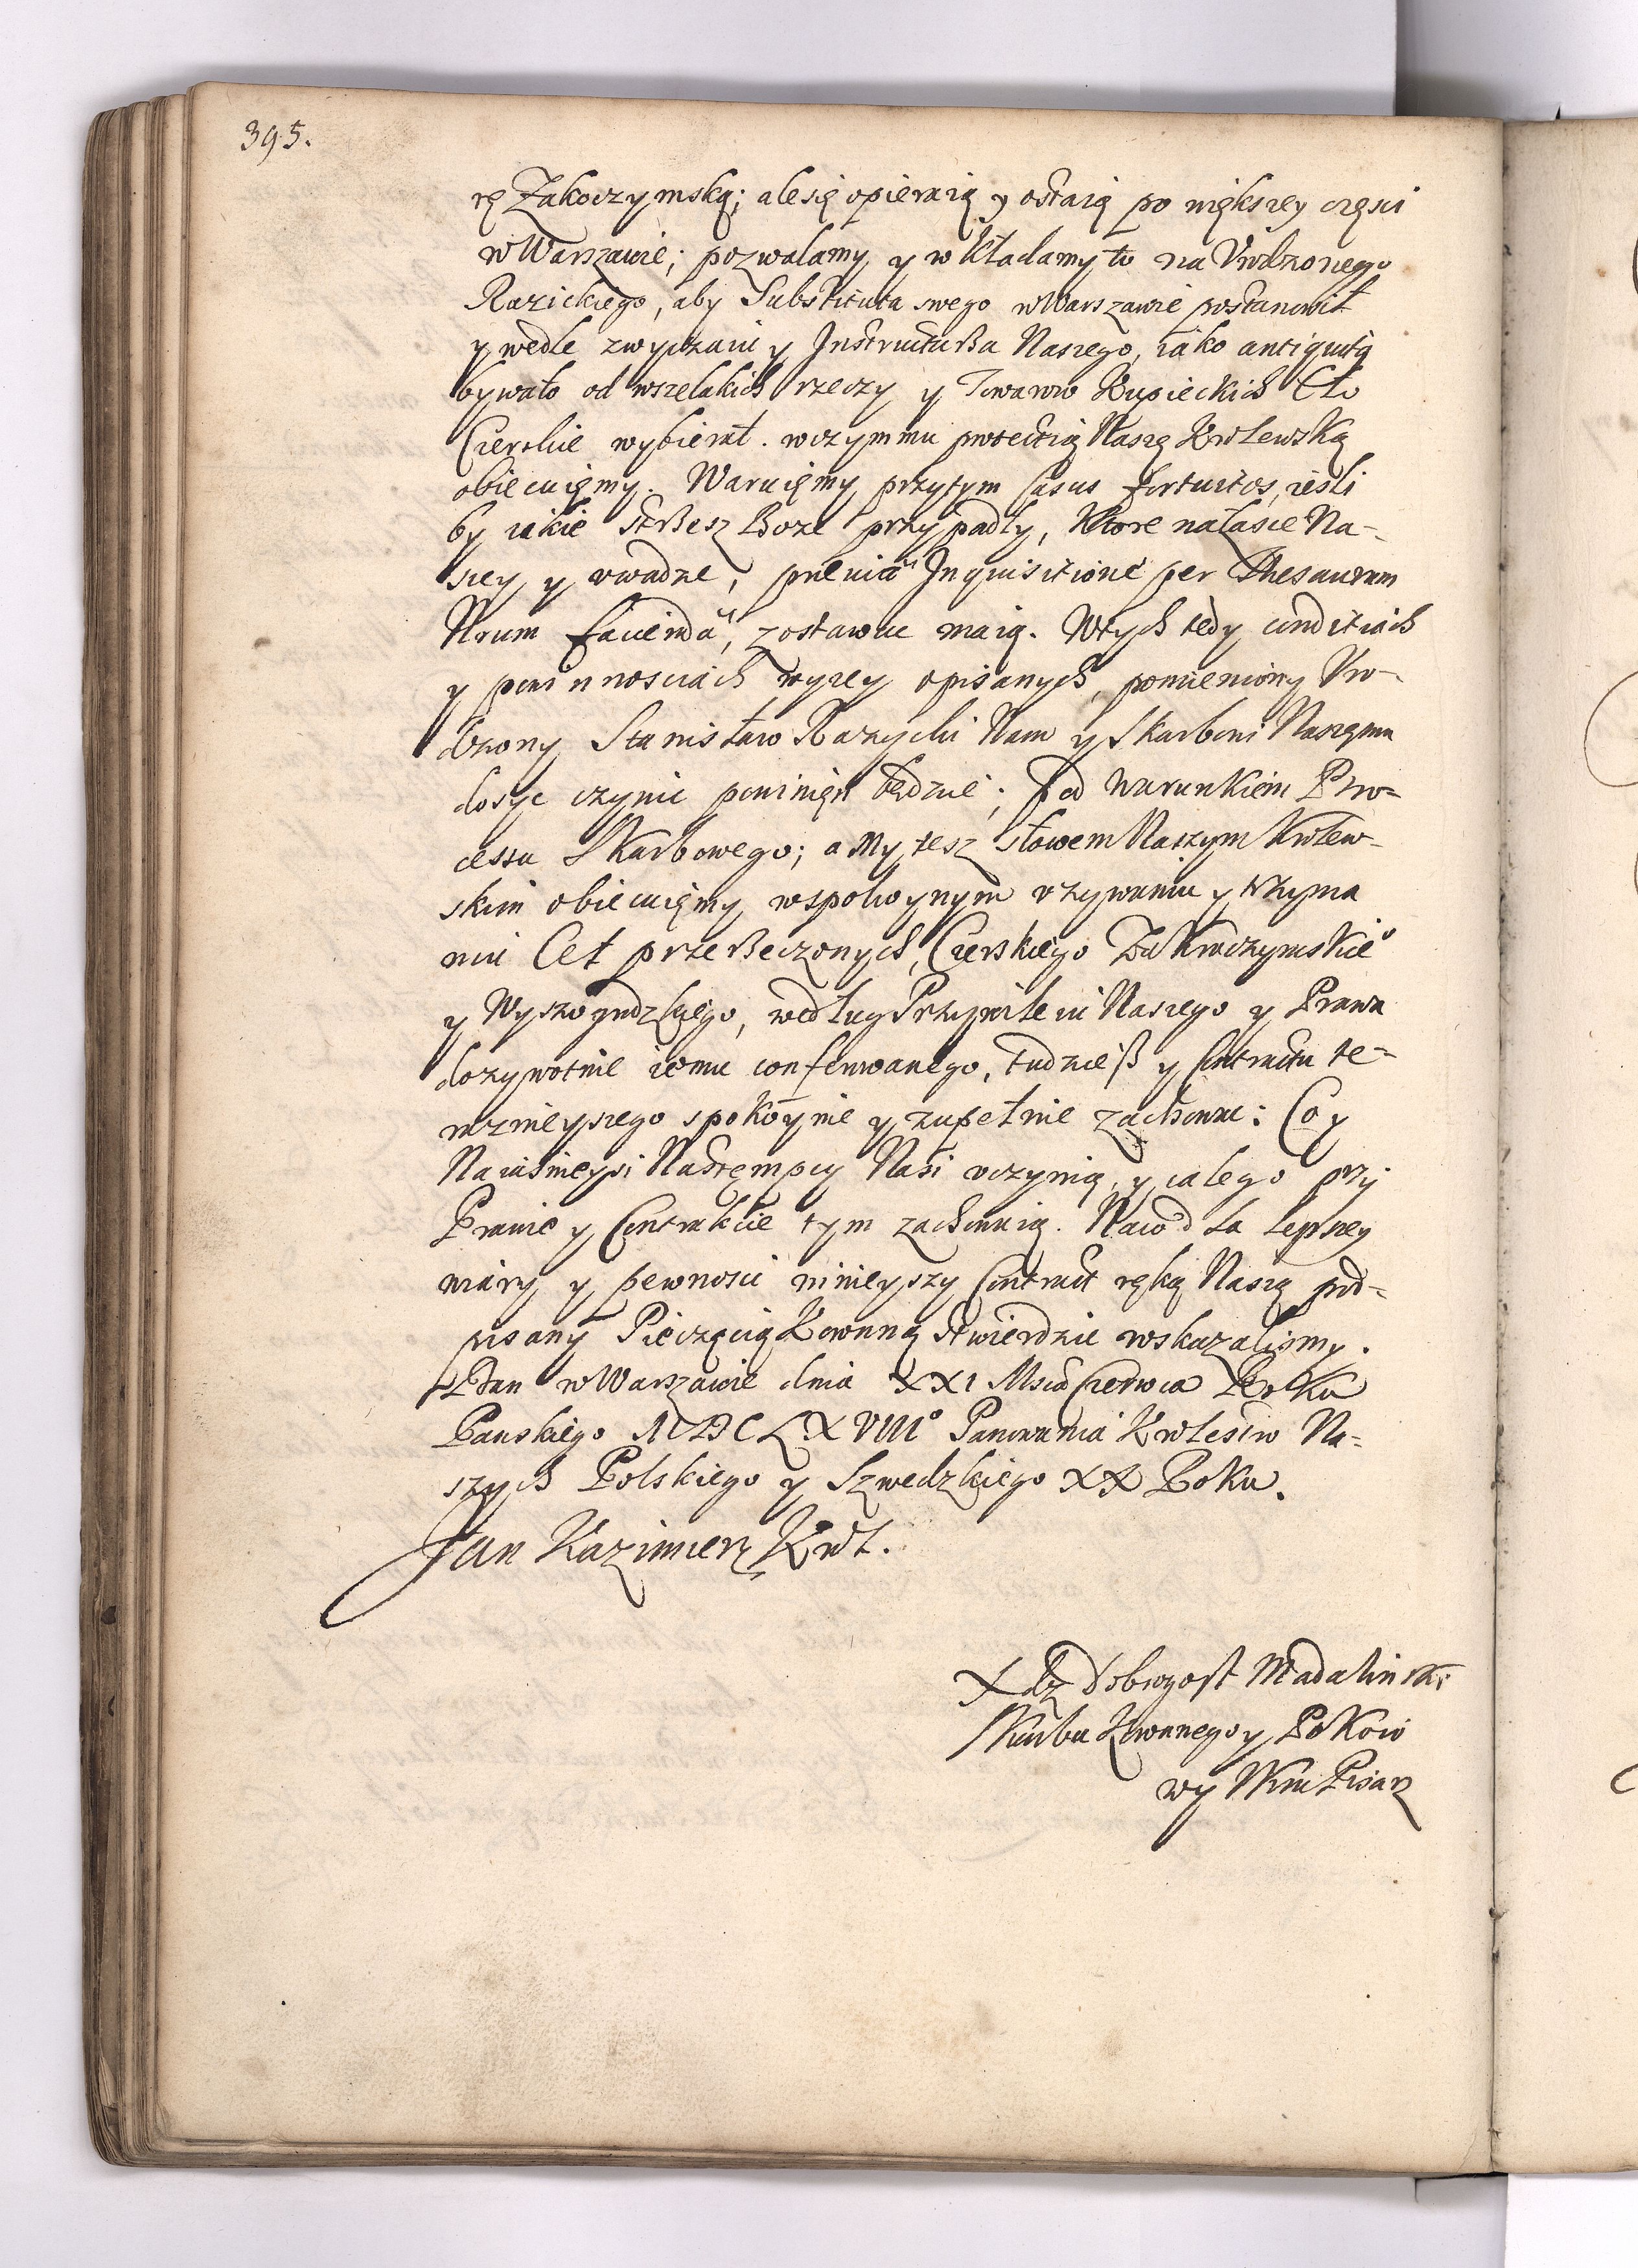 395.
rę Zakoczymską; ale się opieraią y ostaią po większey części
w Warszawie; pozwalamy y wkładamy to na Vrodzonego
Razickiego, aby Substituta swego w Warszawie postanowił
y wedle zwyczaiu y Instructarza Naszego, iako antiquitq
bywało od wszelakich rzeczy y Towarow Kupieckich Cło
Czerskie wybierał. w czym mu protectią Naszą Krolewską
obiecuięmy. Waruięmy przytym Casus fortuitos, iesli
by iakie strzesz Boze przypadły, ktore na łasce Na-
szey y uwadze, praeuiâ Inquisitione per Thesaurum
Nrum faciendâ, zostawac maią. W tych tedy conditiach
y powinnosciach wyzey opisanych, pomieniony Vro-
dzony Stanisław Razycki Nam y Skarbowi Naszęmu
dosyc czynic powinięn będzie; pod warunkiem Pro-
cessu Skarbowego; a My tesz słowem Naszym Krolew-
skim obiecuięmy w spokoynym vzywaniu y trzyma
niu Ceł przerzeczonych, Czerskiego Zakroczymskieo
y Wyszogrodzkiego, według Przywileiu Naszego y Prawa
dozywotnie iemu conferowanego, tudziesz y Contractu te-
raznieyszego spokoynie y zupełnie zachowac: Co y
Naiasnieysi Nastęmpcy Nasi vczynią, y całego przy
Prawie y Contrakcie tym zachowaią. Na co dla lepszey
wiary y pewnosci ninieyszy Contract ręką Naszą pod-
pisany Pieczęcią Koronną stwierdzic wskazalismy.
Dan w Warszawie dnia XXI Msca Czerwca Roku
Panskiego MDCLXVIIIo Panowania Krolestw Na-
szych Polskiego y Szwedzkiego XX Roku.
Jan Kazimierz Krol.
Xdz Dobrogost Madalinski
Skarbu Koronnego y Pokoio
wy JKM Pisarz